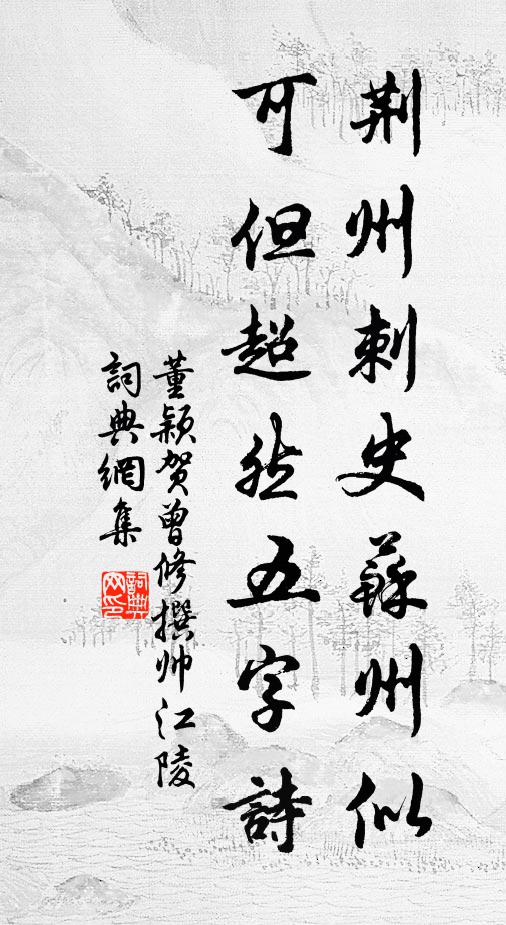 荆州刺史蘇州似
可但超然五字詩
董颖贺曾修撰帅江陵
詞典網集
詞典網印